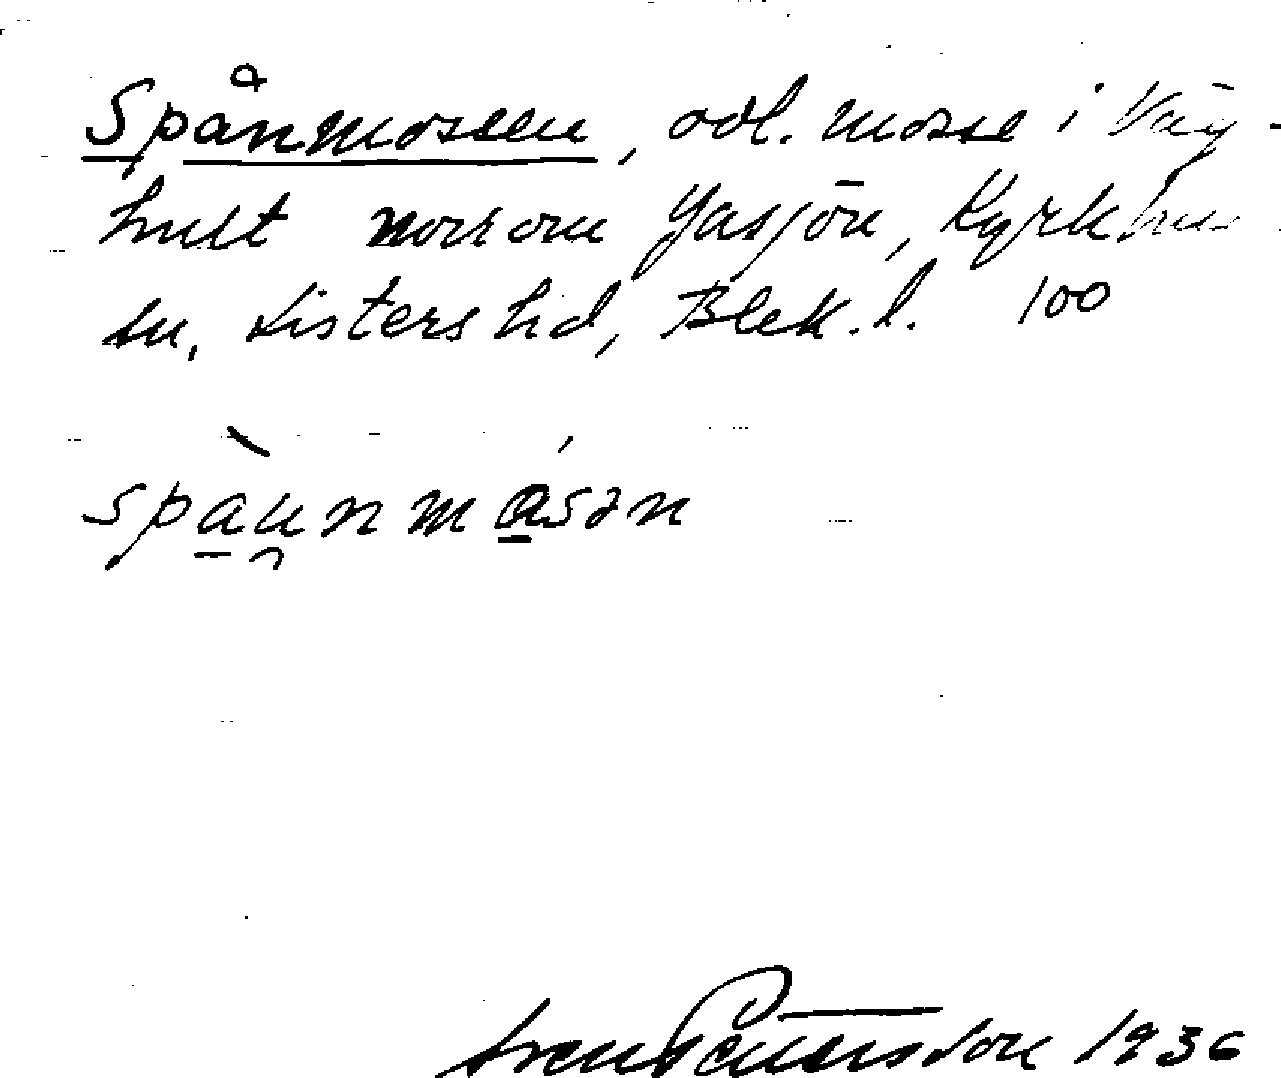 Spånmossen, odl. mosse i Väg-
hult norr om Gasjön, Kyrkhu-
su, Listers hd, Blek. l. 100
spàu̯nmásən
Sven Pettersson 1936